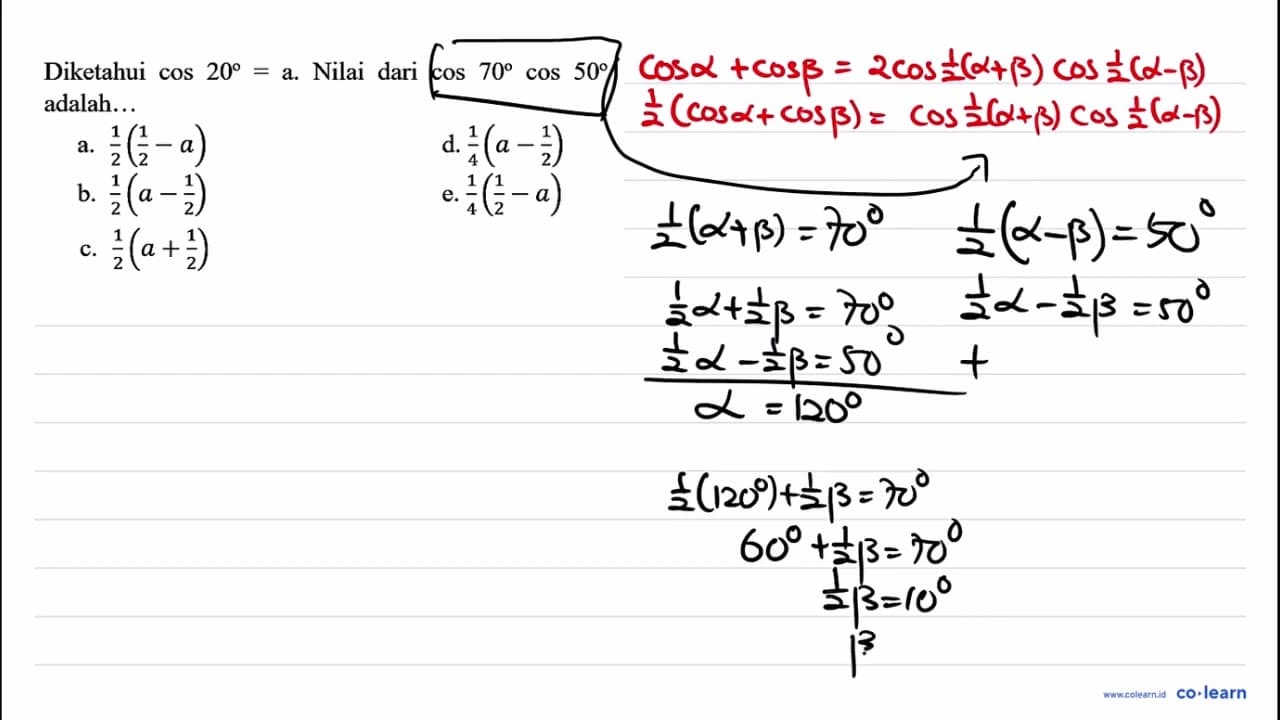 Diketahui cos 20° = a. Nilai dari cos 70° cos 50°
adalah…
a. 1/2(1/2 − a)
b. 1/2(a − 1/2)
c. 1/2(a + 1/2)
d. 1/4(a − 1/2)
e. 1/4(1/2 − a)
cosα + cosβ = 2cos 1/2(α+β) cos 1/2(α−β)
1/2(cosα + cosβ) = cos 1/2(α+β) cos 1/2(α−β)
1/2(α+β) = 70°
1/2α + 1/2β = 70°
1/2α − 1/2β = 50° +
α = 120°
1/2(α−β) = 50°
1/2α − 1/2β = 50°
1/2(120°) + 1/2β = 70°
60° + 1/2β = 70°
1/2β = 10°
β
www.colearn.id co·learn